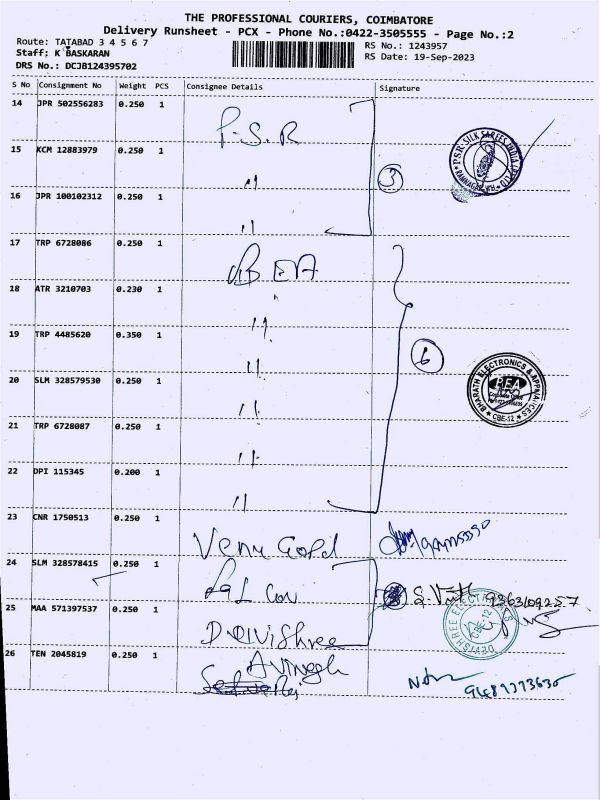 THE PROFESSIONAL COURIERS, COIMBATORE
Delivery Runsheet - PCX - Phone No.:0422-3505555 - Page No.:2
Route: TATABAD 3 4 5 6 7
RS No.: 1243957
Staff; K BASKARAN
RS Date: 19-Sep-2023
DRS No.: DCJB124395702
S No Consignment No Weight PCS Consignee Details Signature
14 JPR 502556283 0.250 1
P.S.R
15 KCM 12883979 0.250 1
"
③
PSR SILK SAREES INDIA
16 JPR 100102312 0.250 1
"
17 TRP 6728086 0.250 1
BEA
18 ATR 3210703 0.230 1
"
19 TRP 4485620 0.350 1
"
⑥
20 SLM 328579530 0.250 1
"
BHARATH ELECTRONICS & APPLIANCES
BEA
CBE-12
21 TRP 6728087 0.250 1
"
22 DPI 115345 0.200 1
"
23 CNR 1750513 0.250 1
Venu Gold
24 SLM 328578415 0.250 1
9363109257
25 MAA 571397537 0.250 1
DeviShree
CBE-12
26 TEN 2045819 0.250 1